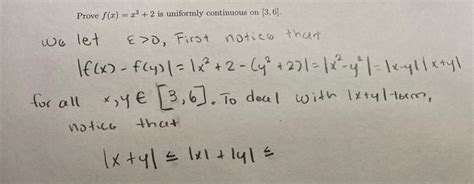 Prove f(x) = x² + 2 is uniformly continuous on [3, 6].
We let ε>0, First notice that
|f(x) - f(y)| = |x² + 2 - (y² + 2)| = |x² - y²| = |x-y||x+y|
for all x,y ∈ [3,6]. To deal with |x+y| term,
notice that
|x+y| ≤ |x| + |y| ≤